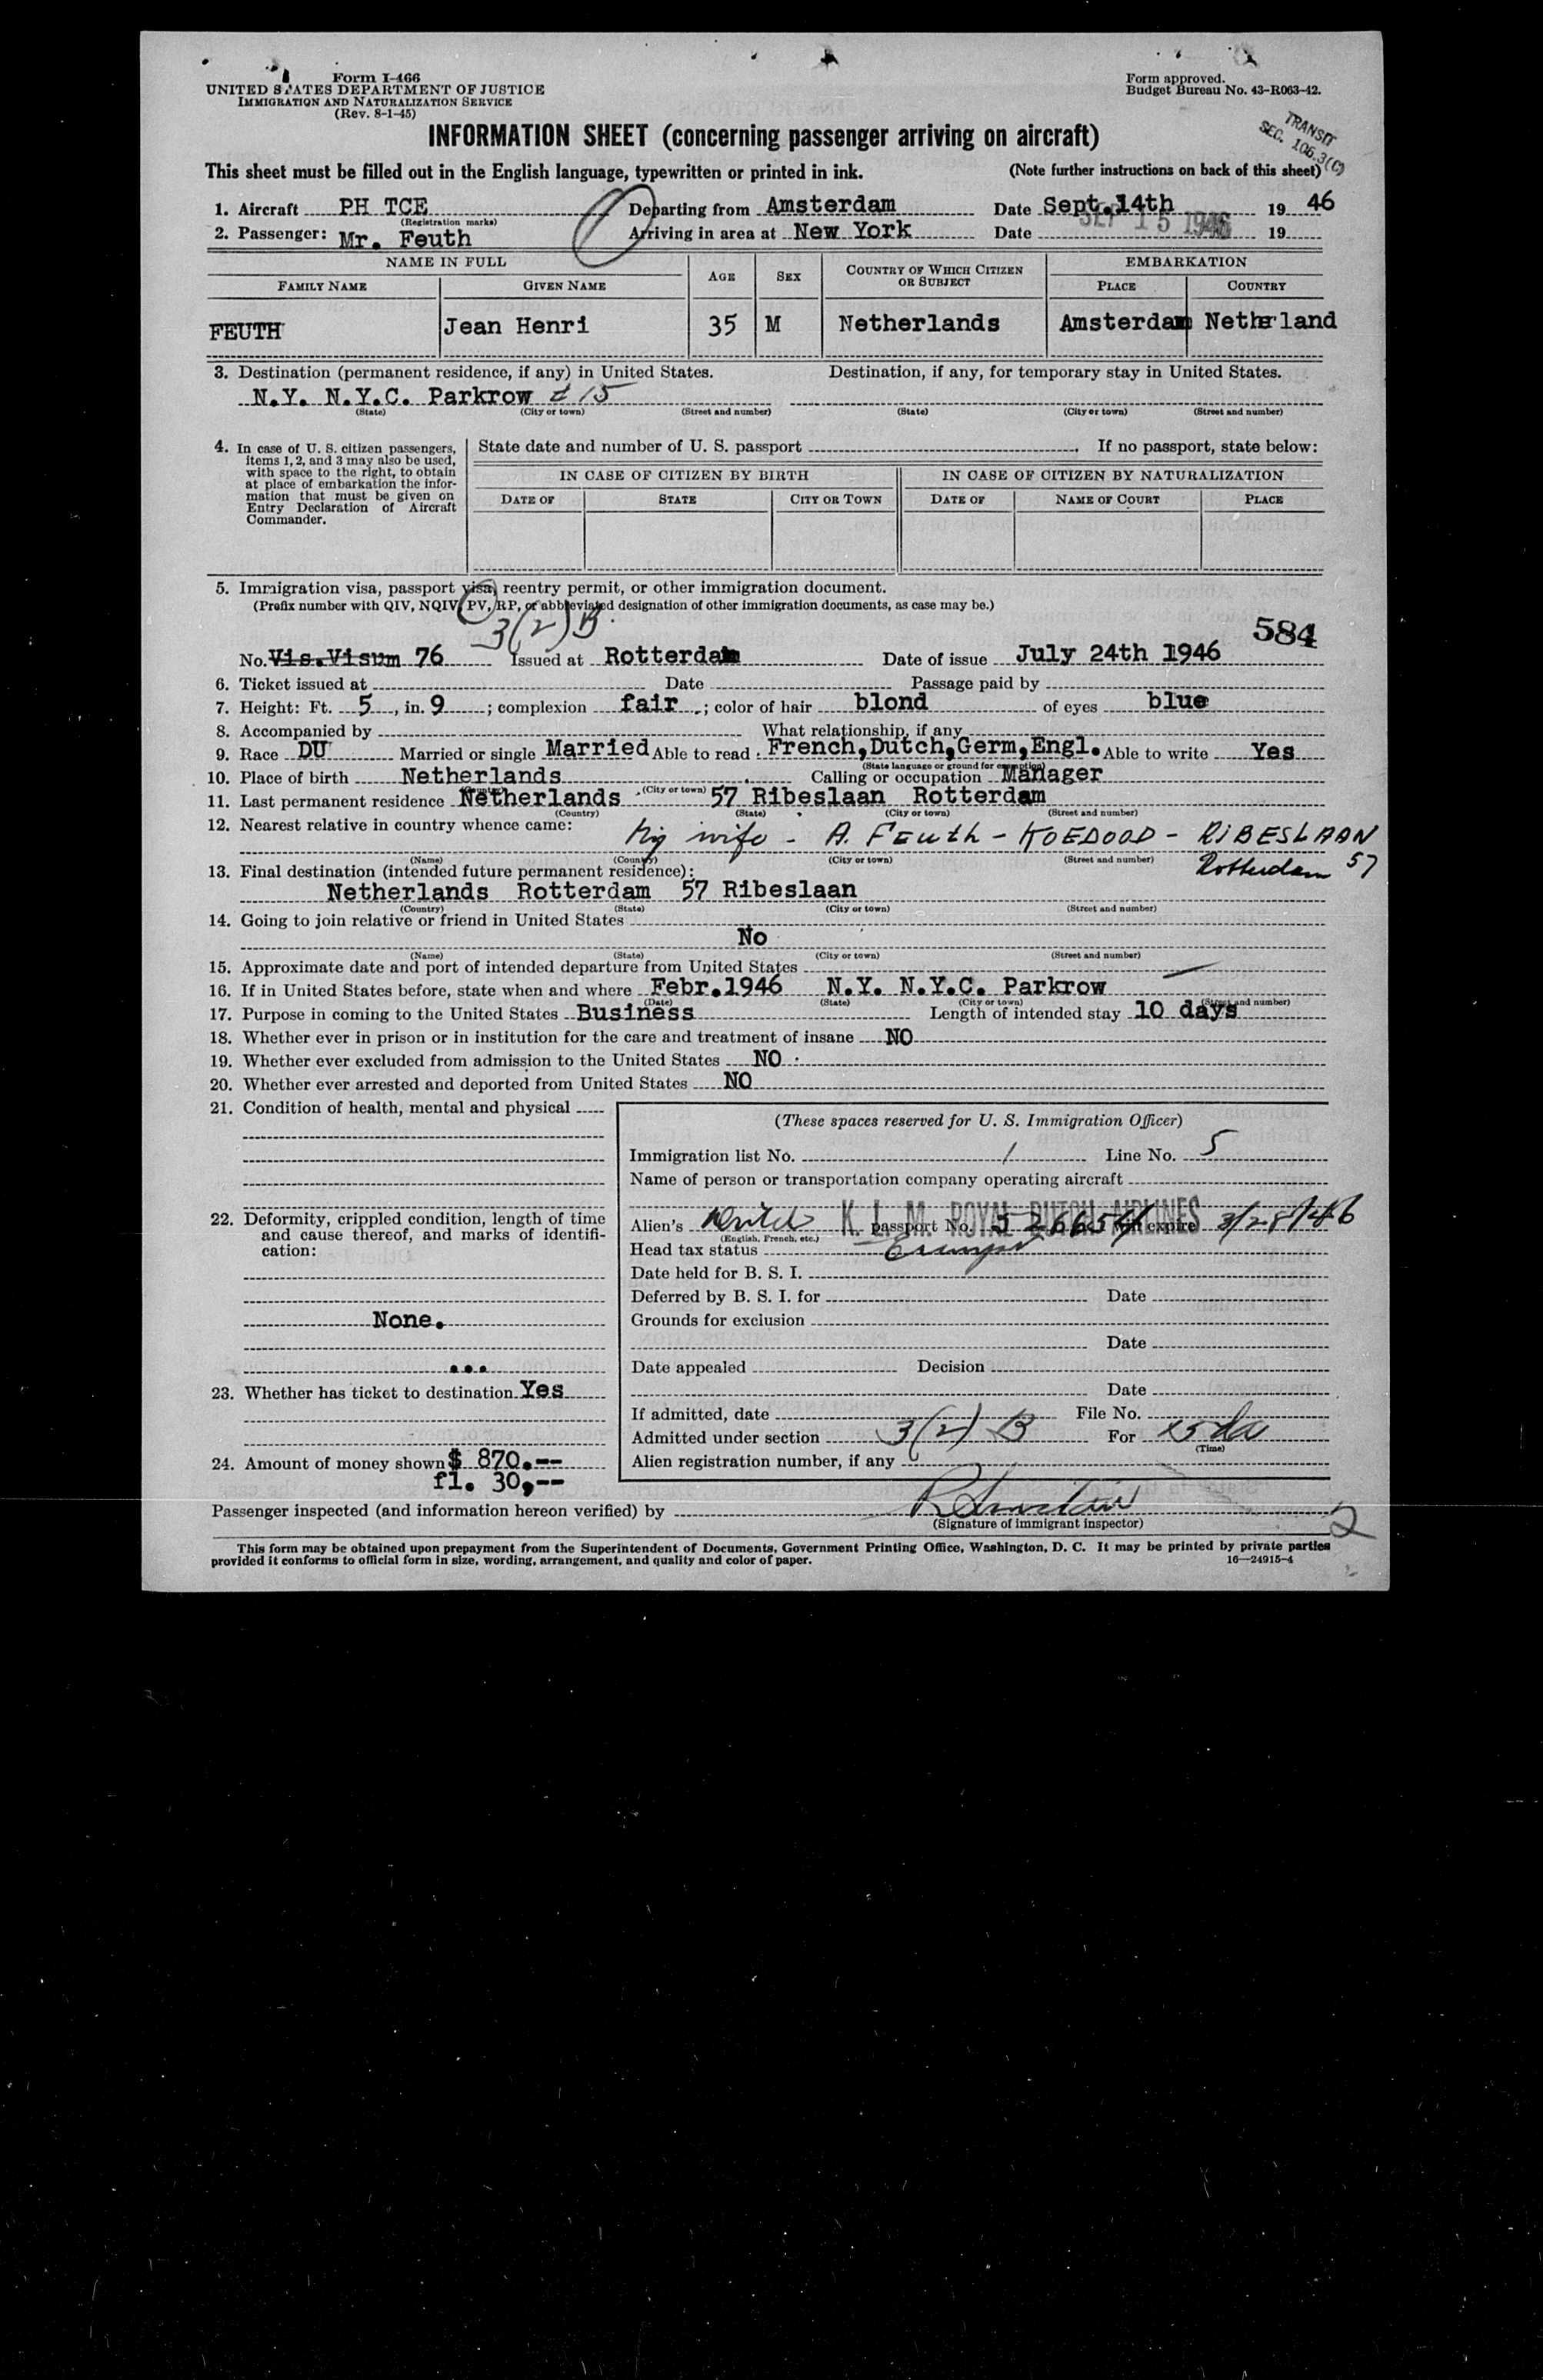 Form I-466
UNITED STATES DEPARTMENT OF JUSTICE
IMMIGRATION AND NATURALIZATION SERVICE
(Rev. 8-1-45)
Form approved.
Budget Bureau No. 43-R063-42.
INFORMATION SHEET (concerning passenger arriving on aircraft)
TRANSIT
SEC. 106.3(C)
This sheet must be filled out in the English language, typewritten or printed in ink. (Note further instructions on back of this sheet)
1. Aircraft PH TCE Departing from Amsterdam Date Sept. 14th 19 46
(Registration marks)
2. Passenger: Mr. Feuth Arriving in area at New York Date SEP 15 1946 19
NAME IN FULL AGE SEX COUNTRY OF WHICH CITIZEN OR SUBJECT EMBARKATION
FAMILY NAME GIVEN NAME PLACE COUNTRY
FEUTH Jean Henri 35 M Netherlands Amsterdam Netherland
3. Destination (permanent residence, if any) in United States. Destination, if any, for temporary stay in United States.
N.Y. N.Y.C. Parkrow 15
(State) (City or town) (Street and number) (State) (City or town) (Street and number)
4. In case of U. S. citizen passengers, items 1, 2, and 3 may also be used, with space to the right, to obtain at place of embarkation the information that must be given on Entry Declaration of Aircraft Commander.
State date and number of U. S. passport . If no passport, state below:
IN CASE OF CITIZEN BY BIRTH IN CASE OF CITIZEN BY NATURALIZATION
DATE OF STATE CITY OR TOWN DATE OF NAME OF COURT PLACE
5. Immigration visa, passport visa, reentry permit, or other immigration document.
(Prefix number with QIV, NQIV, PV, RP, or abbreviated designation of other immigration documents, as case may be.)
3(2)B
584
No. Vis.Visum 76 Issued at Rotterdam Date of issue July 24th 1946
6. Ticket issued at Date Passage paid by
7. Height: Ft. 5, in. 9; complexion fair; color of hair blond of eyes blue
8. Accompanied by What relationship, if any
9. Race DU Married or single Married Able to read French,Dutch,Germ,Engl. Able to write Yes
(State language or ground for exemption)
10. Place of birth Netherlands Calling or occupation Manager
(Country) (City or town)
11. Last permanent residence Netherlands 57 Ribeslaan Rotterdam
(Country) (State) (City or town) (Street and number)
12. Nearest relative in country whence came: My wife - A. FEUTH - KOEDOOD - RIBESLAAN 57
Rotterdam
(Name) (Country) (City or town) (Street and number)
13. Final destination (intended future permanent residence):
Netherlands Rotterdam 57 Ribeslaan
(Country) (State) (City or town) (Street and number)
14. Going to join relative or friend in United States
No
(Name) (State) (City or town) (Street and number)
15. Approximate date and port of intended departure from United States
16. If in United States before, state when and where Febr.1946 N.Y. N.Y.C. Parkrow
(Date) (State) (City or town) (Street and number)
17. Purpose in coming to the United States Business Length of intended stay 10 days
18. Whether ever in prison or in institution for the care and treatment of insane NO
19. Whether ever excluded from admission to the United States NO
20. Whether ever arrested and deported from United States NO
21. Condition of health, mental and physical
22. Deformity, crippled condition, length of time and cause thereof, and marks of identification:
None.
...
23. Whether has ticket to destination Yes
24. Amount of money shown $ 870.--
fl. 30,--
(These spaces reserved for U. S. Immigration Officer)
Immigration list No. 1 Line No. 5
Name of person or transportation company operating aircraft
K. L. M. ROYAL DUTCH AIRLINES
Alien's Dutch passport No. will expire
(English, French, etc.)
Head tax status Exempt
Date held for B. S. I.
Deferred by B. S. I. for Date
Grounds for exclusion
Date
Date appealed Decision
Date
If admitted, date File No.
Admitted under section 3(2) B For
(Time)
Alien registration number, if any
Passenger inspected (and information hereon verified) by
(Signature of immigrant inspector)
2
This form may be obtained upon prepayment from the Superintendent of Documents, Government Printing Office, Washington, D. C. It may be printed by private parties
provided it conforms to official form in size, wording, arrangement, and quality and color of paper. 16—24915-4